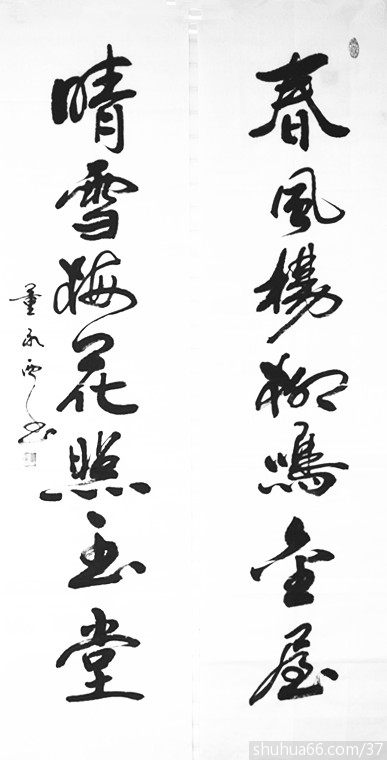 春風楊柳鳴金屋
晴雪梅花照玉堂
董永西书
shuhua66.com/37